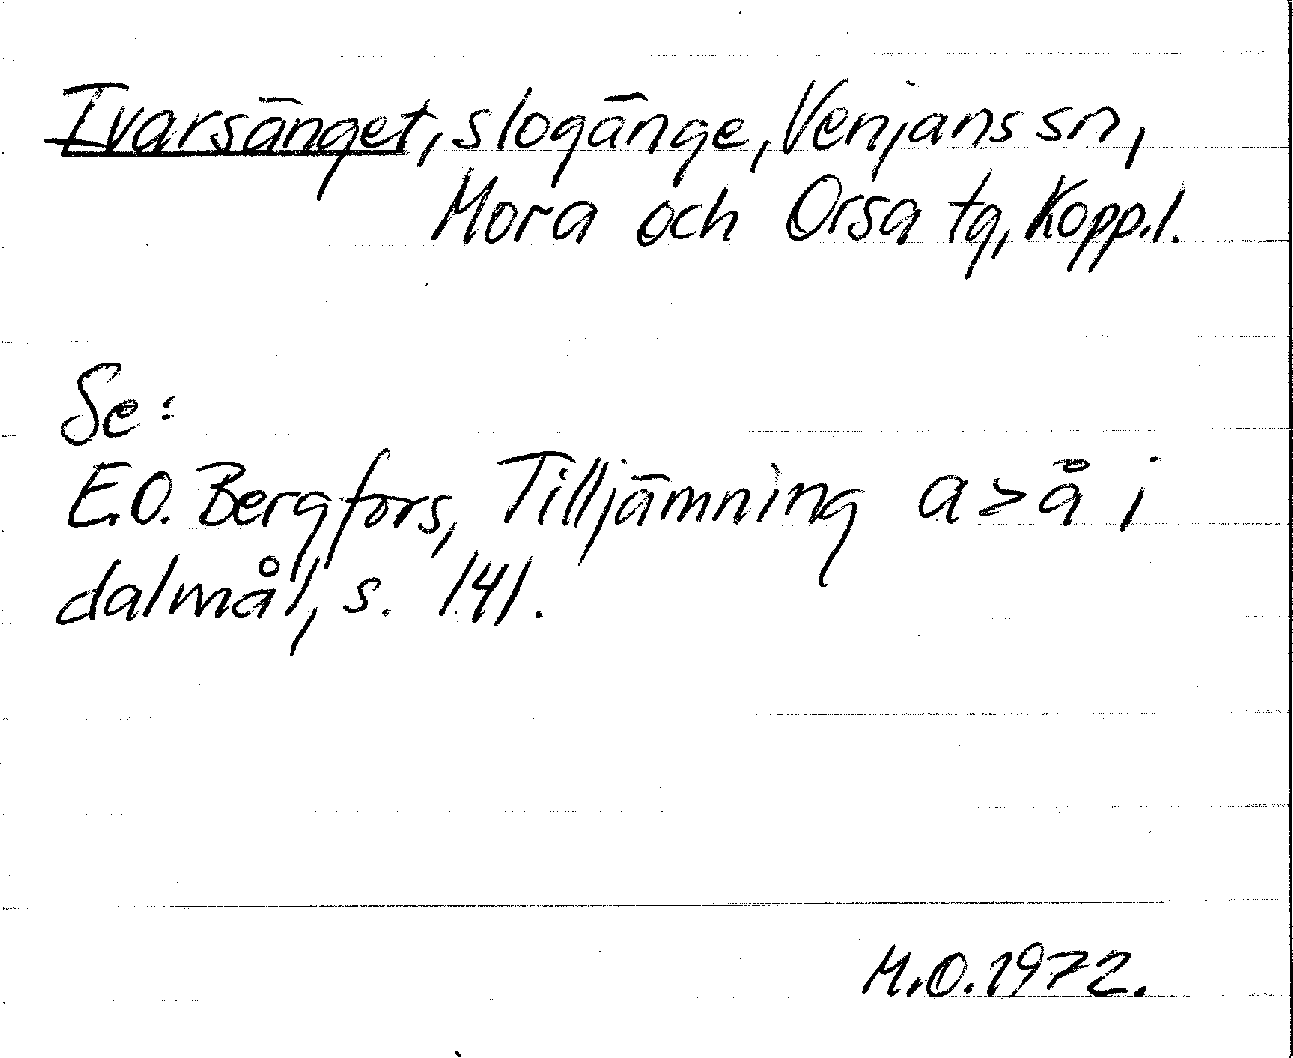 Ivarsänget, slogänge, Venjans sn,
Mora och Orsa tg, Kopp.l.
Se:
E.O. Bergfors, Tilljämning a>å i
dalmål, s. 141.
M.O.1972.